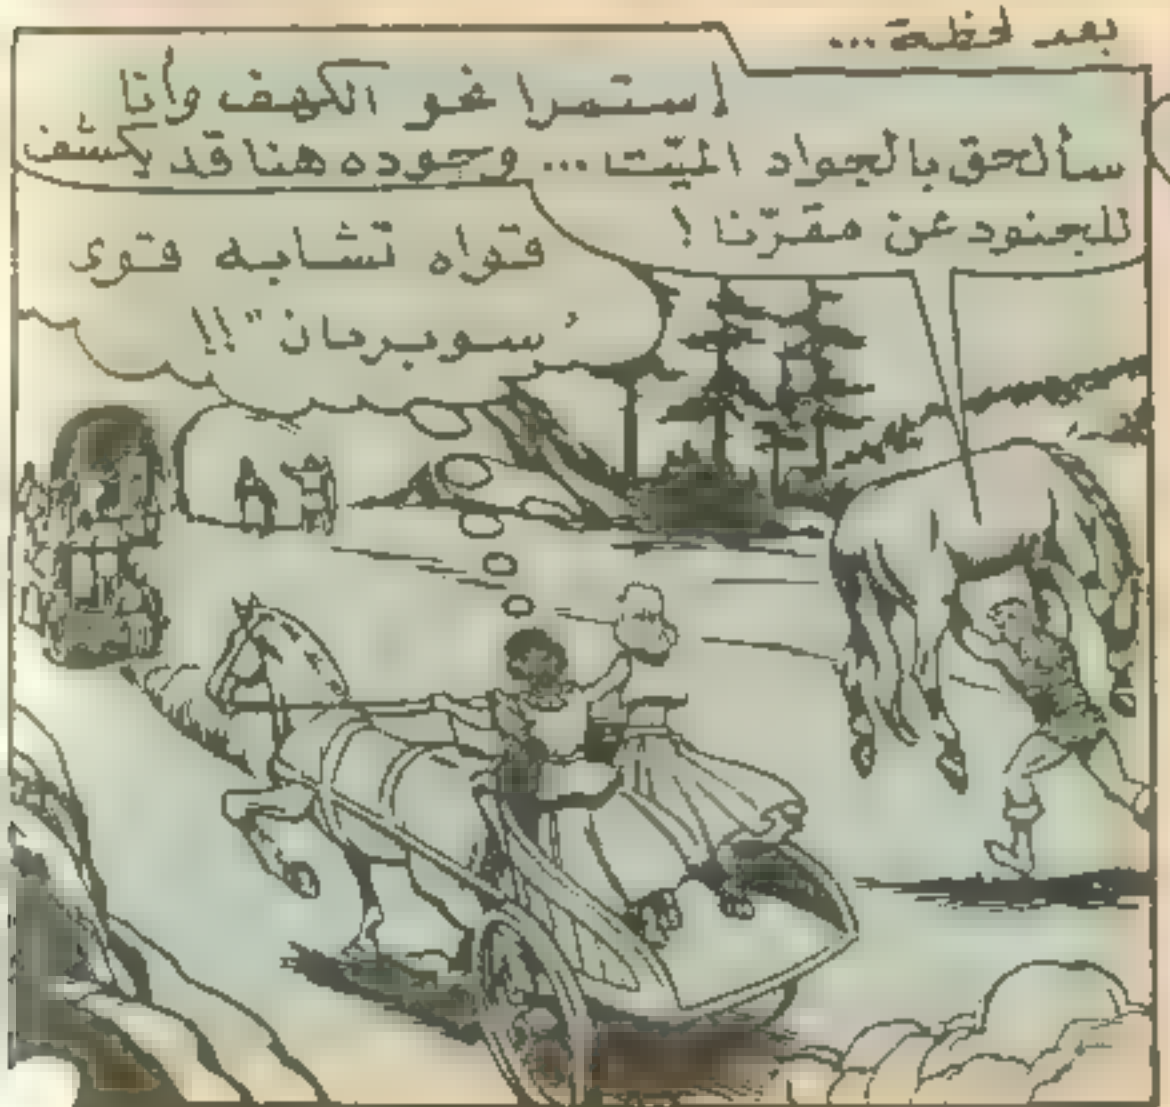 بعد لحظة...
استمرا نحو الكهف وأنا
سألحق بالجواد الميّت... وجوده هنا قد يكشف
للجنود عن مقرّنا!
قواه تشابه قوى
"سوبرمان"!!